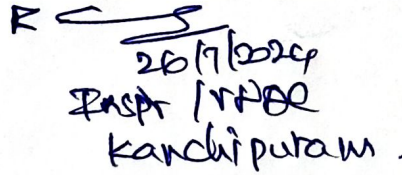 26/7/2024
Inspr
Kanchipuram.